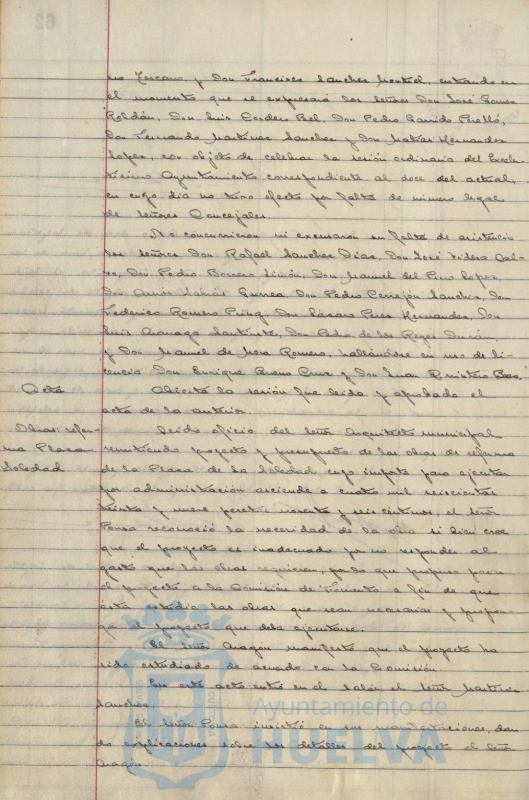 no Lescano, y Don Francisco Sanchez Montiel, entrando en
el momento que se expresará los señores Don José Gomez
Roldán, Don Luis Cordero Bel, Don Pedro Garrido Perelló,
Don Fernando Martinez Sanchez y Don Matias Hernandez
Lopez, con objeto de celebrar la sesión ordinaria del Excelen-
tisimo Ayuntamiento correspondiente al doce del actual,
en cuyo dia no tuvo efecto por falta de numero legal
de señores Concejales.
No concurrieron ni excusaron su falta de asistencia
los señores Don Rafael Sanchez Diaz, Don José
Don Pedro Borrero Limón, Don Manuel del Pino Lopez,
Don Amós Sabrás Gurrea, Don Pedro Cerrejón Sanchez, Don
Federico Romero Don Lázaro Perez Hernandez, Don
Luis Don Pedro de los Reyes Durán
y Don Manuel de Mora Romero, hallándose en uso de li-
cencia Don Enrique Bueno Cruz y Don Juan Quintero Baez.
Acta
Abierta la sesión fue leida y aprobada el
acta de la anterior.
Obras: refor-
ma Plaza
Soledad
Leido oficio del señor Arquitecto municipal
remitiendo proyecto y presupuesto de las obras de reforma
de la Plaza de la Soledad cuyo importe para ejecutar
por administración asciende a cuatro mil seiscientas
treinta y nueve pesetas noventa y seis céntimos, el señor
Ponsa reconoció la necesidad de la obra si bien cree
que el proyecto es inadecuado por no responder al
gasto que las obras requieren, por lo que propuso pasar
el proyecto a la Comisión de Fomento a fin de que
ésta estudie las obras que sean necesarias y propon-
ga el proyecto que deba ejecutarse.
El señor Aragón manifestó que el proyecto ha
sido estudiado de acuerdo con la Comisión.
En este acto entró en el salón el señor Martinez
Sanchez.
El señor Ponsa insistió en sus manifestaciones, dan-
do explicaciones sobre los detalles del proyecto el señor
Aragón.
Ayuntamiento de
HUELVA